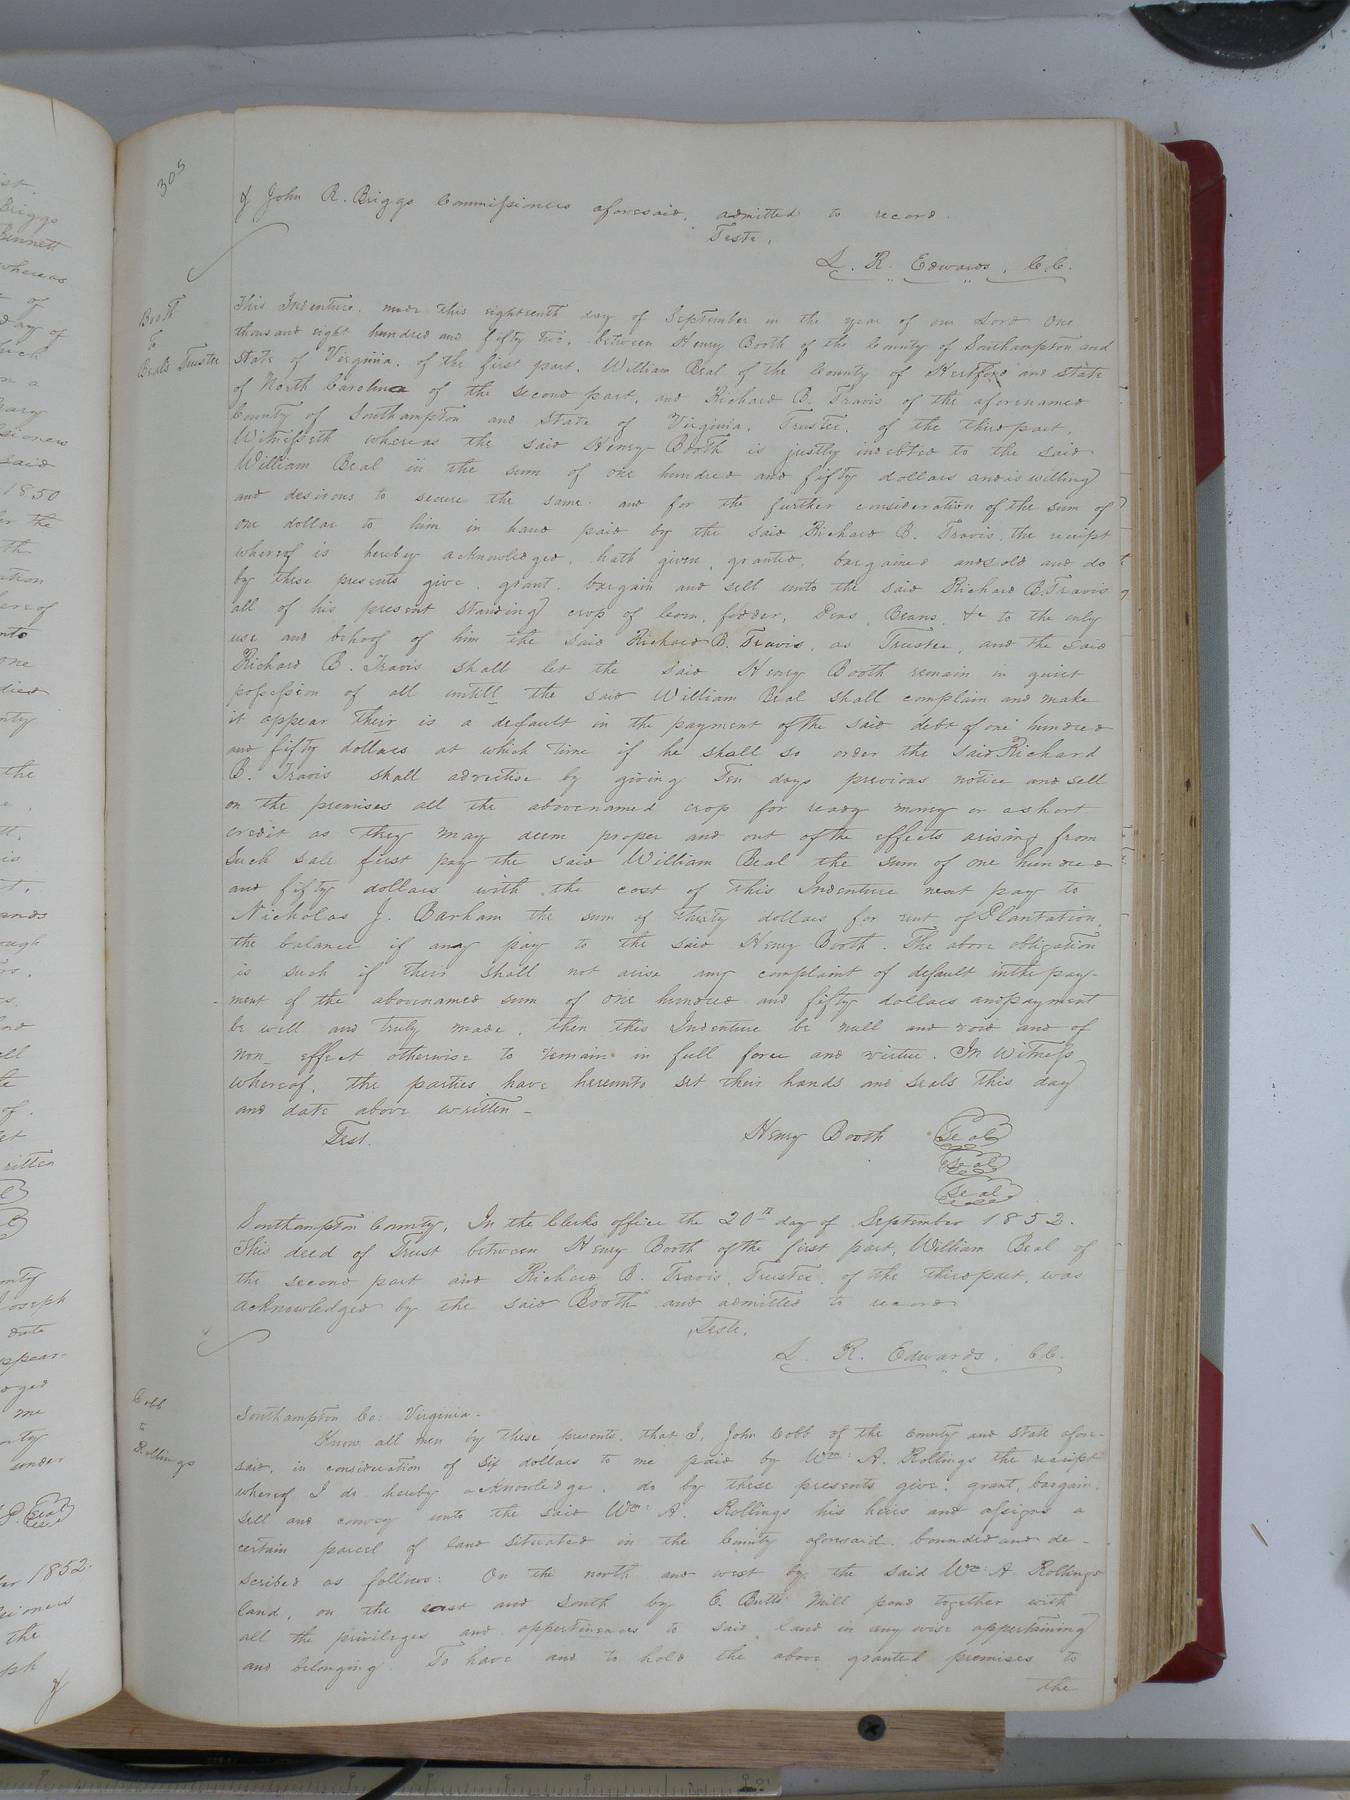 305
& John R. Briggs Commissioners aforesaid, admitted to record.
Teste,
L. R. Edwards, C.C.
Booth
to
Beals Trustee
This Indenture, made this eighteenth day of September in the year of our Lord One
thousand eight hundred and fifty two, between Henry Booth of the County of Southampton and
State of Virginia, of the first part, William Beal of the County of Hertford and State
of North Carolina of the second part, and Richard B. Travis of the aforenamed
County of Southampton and State of Virginia, Trustee, of the third part,
Witnesseth whereas the said Henry Booth is justly indebted to the said
William Beal in the sum of one hundred and fifty dollars and is willing
and desirous to secure the same and for the further consideration of the sum of
one dollar to him in hand paid by the said Richard B. Travis, the receipt
whereof is hereby acknowledged, hath given, granted, bargained and sold and do
by these presents give, grant, bargain and sell unto the said Richard B. Travis
all of his present standing crop of Corn, fodder, Peas, Beans, &c to the only
use and behoof of him the said Richard B. Travis, as Trustee, and the said
Richard B. Travis shall let the said Henry Booth remain in quiet
possession of all untill the said William Beal shall complain and make
it appear their is a default in the payment of the said debt of one hundred
and fifty dollars at which time if he shall so order the said Richard
B. Travis shall advertise by giving Ten days previous notice and sell
on the premises all the abovenamed crop for ready money or a short
credit as they may deem proper and out of the effects arising from
such sale first pay the said William Beal the sum of one hundred
and fifty dollars with the cost of this Indenture next pay to
Nicholas J. Barham the sum of thirty dollars for rent of Plantation,
the balance if any pay to the said Henry Booth. The above obligation
is such if their shall not arise any complaint of default in the pay-
ment of the abovenamed sum of one hundred and fifty dollars and payment
be well and truly made, then this Indenture be null and void and of
non effect otherwise to remain in full force and virtue. In Witness
whereof, the parties have hereunto set their hands and seals this day
and date above written -
Test.
Henry Booth Seal
Seal
Seal
Southampton County, In the Clerks office the 20th day of September 1852.
This deed of Trust between Henry Booth of the first part, William Beal of
the second part and Richard B. Travis, Trustee of the third part, was
acknowledged by the said Booth and admitted to record
Teste,
L. R. Edwards, CC.
Cobb
to
Rollings
Southampton Co: Virginia.
Know all men by these presents, that I, John Cobb of the County and State afore-
said, in consideration of Six dollars to me paid by Wm. A. Rollings the receipt
whereof I do hereby acknowledge, do by these presents give, grant, bargain,
sell and convey unto the said Wm. A. Rollings his heirs and assigns a
certain parcel of land Situated in the County aforesaid bounded and de-
scribed as follows: On the north and west by the said Wm. A Rollings
land, on the east and South by E. Butts Mill pond together with
all the privileges and appertinences to said land in any wise appertaining
and belonging. To have and to hold the above granted premises to
the